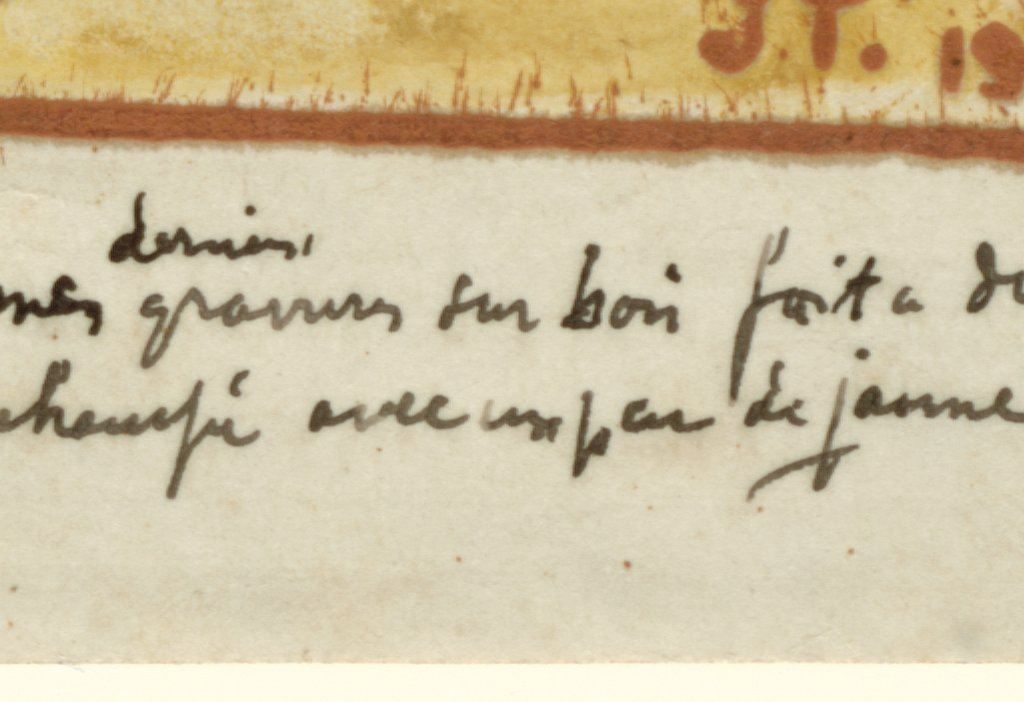 J.P. 19
dernières
mes gravures sur bois fait a
rehaussé avec un peu de jaune